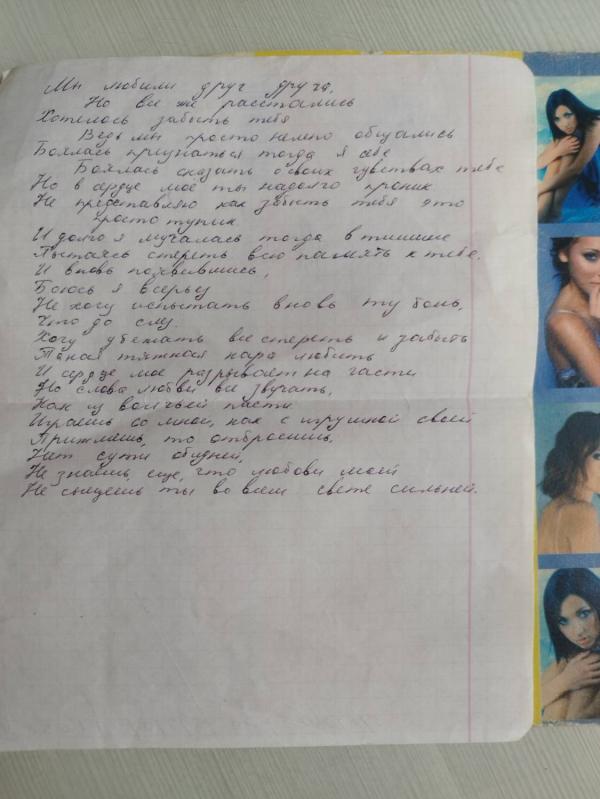 Мы любили друг друга,
Но все же расстались
Хотелось забыть тебя
Ведь мы просто немно общались
Боялась признаться тогда я себе
Боялась сказать о своих чувствах тебе
Но в сердце мое ты надолго проник
Не представляю как забыть тебя это
просто тупик.
И долго я мучалась тогда в тишине
Пытаясь стереть всю память к тебе.
И вновь появившись,
Боюсь я всерьёз
Не хочу испытать вновь ту боль,
Что до слез.
Хочу убежать все стереть и забыть
Такая тяжкая кара любить
И сердце мое разрывает на части
Но слова любви все звучат,
Как из волчьей пасти
Играешь со мной, как с игрушкой своей
Прижмешь, то отбросишь,
Нет сути обидней,
Не знаешь еще, что любови моей
Не сыщешь ты во всем свете сильней.